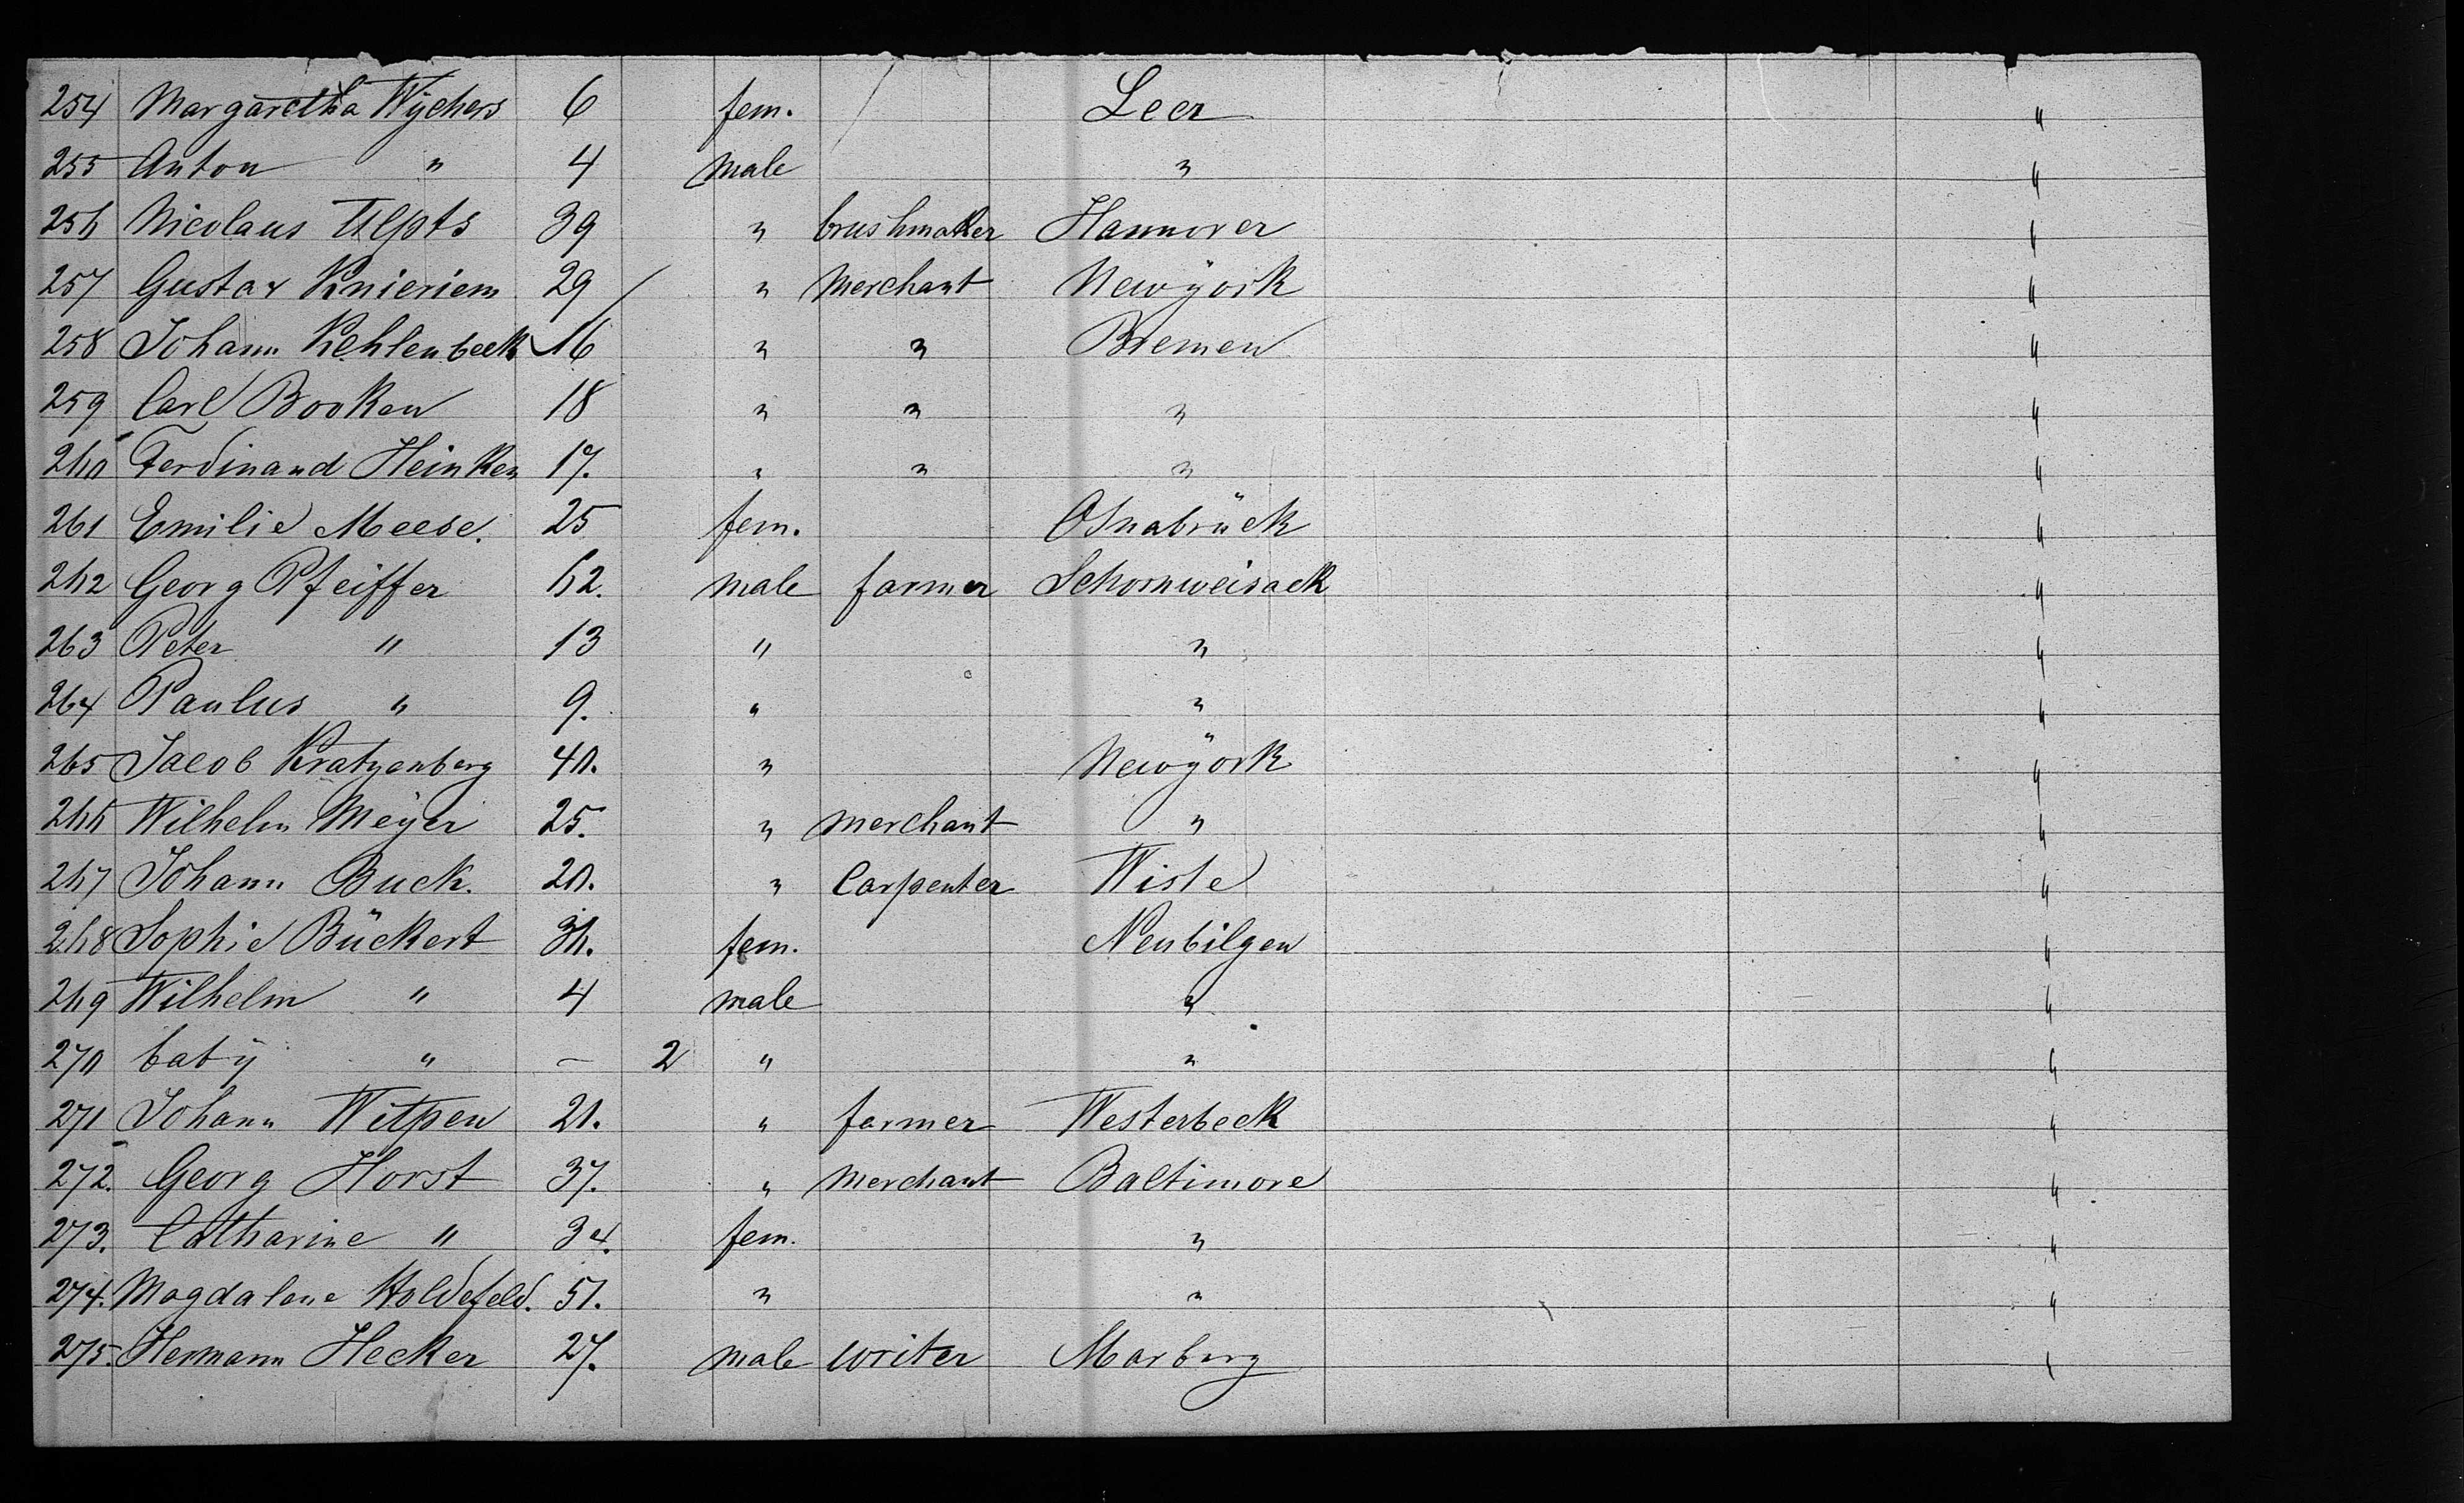 254 Margaretha Wychers 6 fem. Leer "
255 Anton " 4 male " "
256 Nicolaus Ulpts 39 " brushmaker Hannover "
257 Gustav Knieriem 29 " merchant Newÿork "
258 Johann Kehlenbeck 16 " " Bremen "
259 Carl Booken 18 " " " "
260 Ferdinand Heinken 17. " " " "
261 Emilie Meese. 25 fem. Osnabrück "
262 Georg Pfeiffer 62. male farmer Schornweisack "
263 Peter " 13 " " "
264 Paulus " 9. " " "
265 Jacob Kratzenberg 40. " Newÿork "
266 Wilhelm Meÿer 25. " merchant " "
267 Johann Buck. 20. " Carpenter Wiste "
268 Sophie Bückert 36. fem. Neubilgen "
269 Wilhelm " 4 male " "
270 babÿ " — 2 " " "
271 Johann Witpen 21. " farmer Westerbeck "
272. Georg Horst 37. " merchant Baltimore "
273. Catharine " 34. fem. " "
274. Magdalene Holdefeld. 51. " " "
275. Hermann Hecker 27. male writer Marburg "